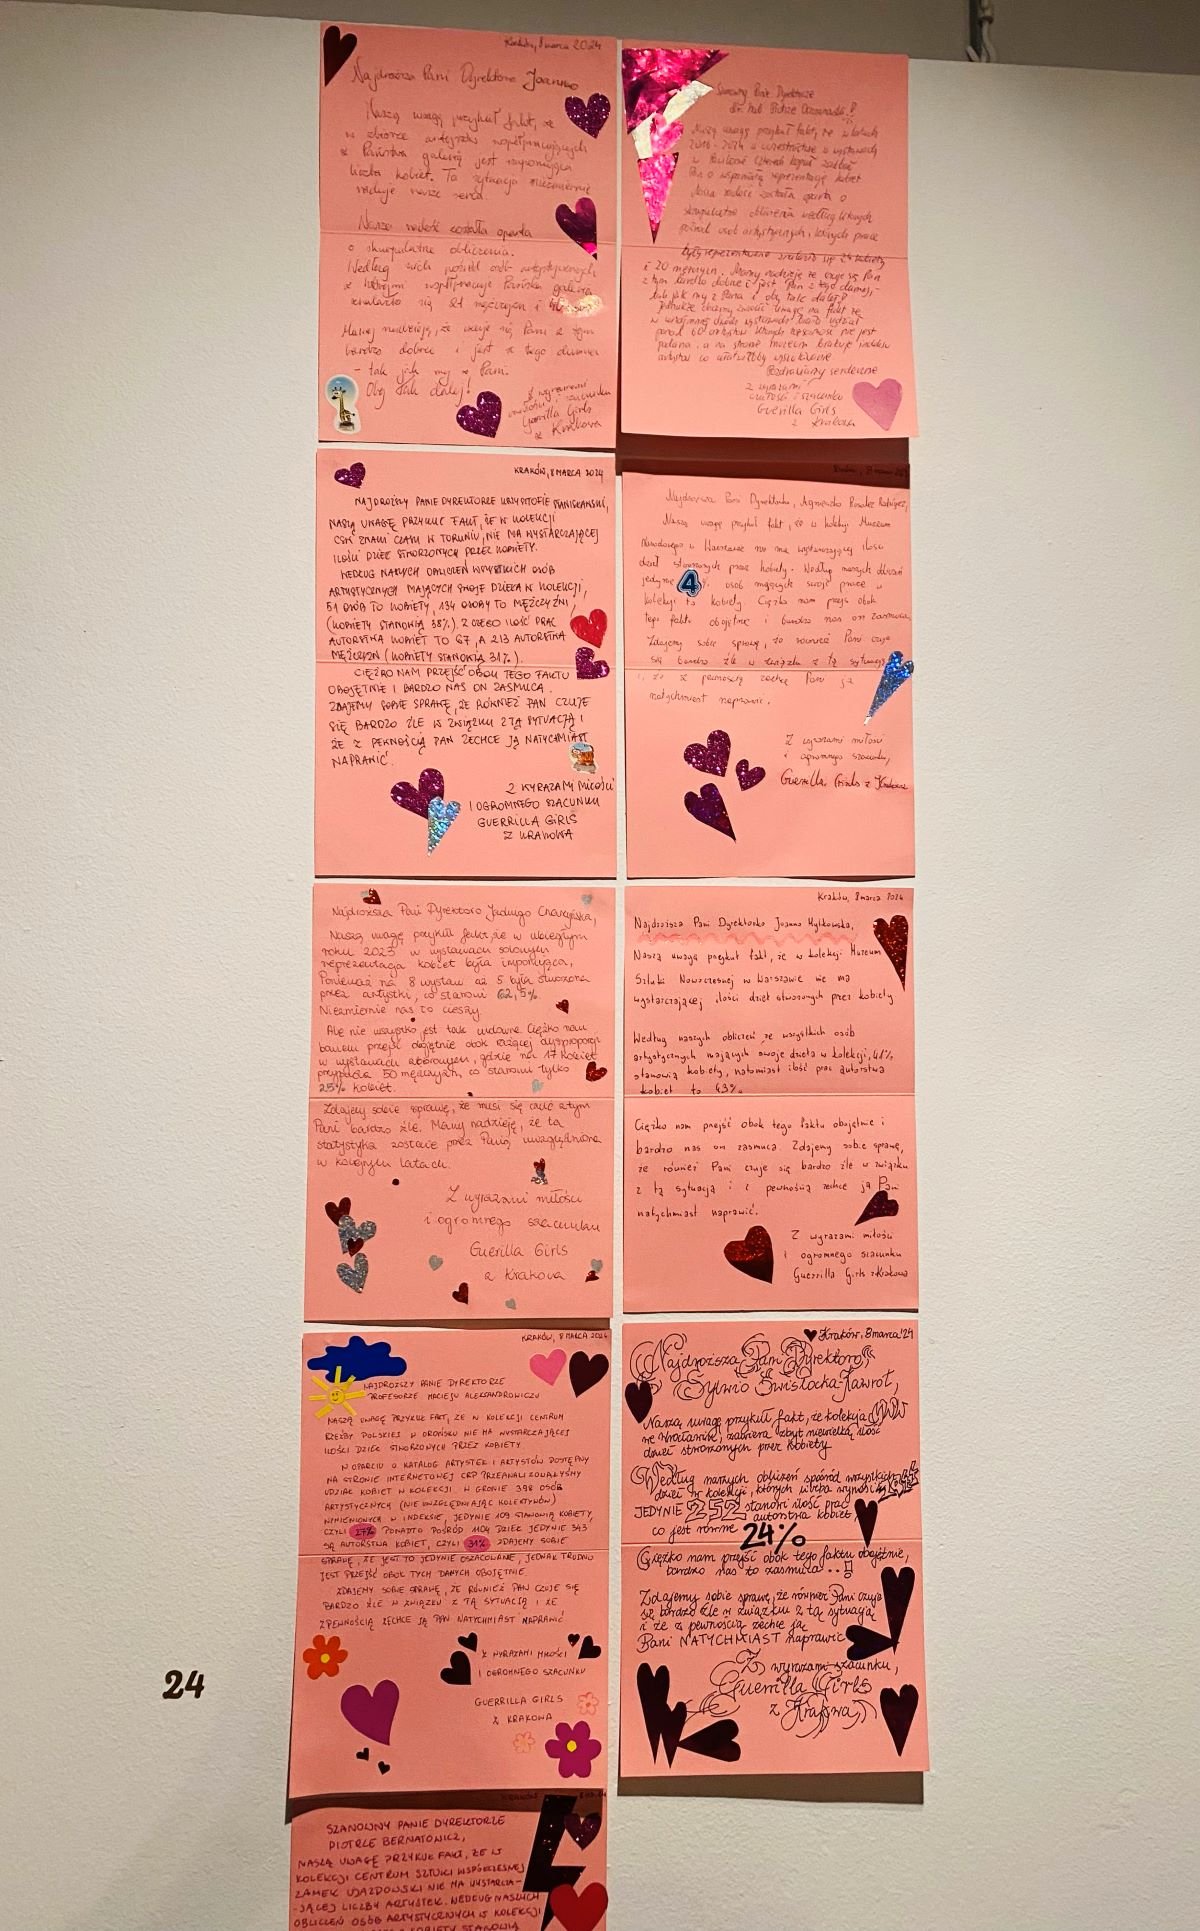 Kraków, 8 marca 2024
Najdroższa Pani Dyrektorko Joanno
Naszą uwagę przykuł fakt, że
w zbiorze artystów współpracujących
z Państwa galerią jest imponująca
liczba kobiet. Ta sytuacja niezmiernie
raduje nasze serca.
Nasza radość została oparta
o skrupulatne obliczenia.
Według nich pośród osób artystycznych
z którymi współpracuje Pańska galeria
znalazło się 21 mężczyzn i
Mamy nadzieję, że czuje się Pani z tym
bardzo dobrze i jest z tego dumna
- tak jak my z Pani.
Oby tak dalej!
Z wyrazami
miłości i szacunku
Guerilla Girls
z Krakowa
Szanowny Panie Dyrektorze
dr. hab. Piotrze
Naszą uwagę przykuł fakt, że w latach
2016-2024 uczestnictwo w wystawach
w Pawilonie Czterech Kopuł zadbał
Pan o wspaniałą reprezentację kobiet
Nasza radość została oparta o
skrupulatne obliczenia według których
pośród osób artystycznych, których prace
były reprezentowane znalazło się 24 kobiety
i 20 mężczyzn. Mamy nadzieję że czuje się Pan
z tym bardzo dobrze i jest Pan z tego dumny,-
tak jak my z Pana i oby tak dalej!
Jednakże chcemy zwrócić uwagę na fakt że
w wystawach brało udział
ponad 60 artystów których nie jest
podana, a na stronie muzeum brakuje indeksu
artystów co ułatwiłoby wyszukiwanie
Pozdrawiamy serdecznie
z wyrazami
czułości i szacunku
Guerilla Girls
z Krakowa
KRAKÓW, 8 MARCA 2024
NAJDROŻSZY PANIE DYREKTORZE KRZYSZTOFIE STANISŁAWSKI,
NASZĄ UWAGĘ PRZYKUŁ FAKT, ŻE W KOLEKCJI
CSW ZNAKI CZASU W TORUNIU, NIE MA WYSTARCZAJĄCEJ
ILOŚCI DZIEŁ STWORZONYCH PRZEZ KOBIETY.
WEDŁUG NASZYCH OBLICZEŃ WSZYSTKICH OSÓB
ARTYSTYCZNYCH MAJĄCYCH SWOJE DZIEŁA W KOLEKCJI,
51 OSÓB TO KOBIETY, 134 OSOBY TO MĘŻCZYŹNI,
(KOBIETY STANOWIĄ 38%). Z CZEGO ILOŚĆ PRAC
AUTORSTWA KOBIET TO 67, A 213 AUTORSTWA
MĘŻCZYZN (KOBIETY STANOWIĄ 31%).
CIĘŻKO NAM PRZEJŚĆ OBOK TEGO FAKTU
OBOJĘTNIE I BARDZO NAS ON ZASMUCA.
ZDAJEMY SOBIE SPRAWĘ, ŻE RÓWNIEŻ PAN CZUJE
SIĘ BARDZO ŹLE W ZWIĄZKU Z TĄ SYTUACJĄ I
ŻE Z PEWNOŚCIĄ PAN ZECHCE JĄ NATYCHMIAST
NAPRAWIĆ.
Z WYRAZAMI MIŁOŚCI
I OGROMNEGO SZACUNKU
GUERRILLA GIRLS
Z KRAKOWA
Kraków, 8 marca 2024
Najdroższa Pani Dyrektorko, Agnieszko
Naszą uwagę przykuł fakt, że w kolekcji Muzeum
Narodowego w Warszawie nie ma wystarczającej ilości
dzieł stworzonych przez kobiety. Według naszych obliczeń
jedynie 4% osób mających swoje prace w
kolekcji to kobiety. Ciężko nam przejść obok
tego faktu obojętnie i bardzo nas on zasmuca.
Zdajemy sobie sprawę, że również Pani czuje
się bardzo źle w związku z tą sytuacją
i, że z pewnością zechce Pani ją
natychmiast naprawić.
Z wyrazami miłości
i ogromnego szacunku,
Guerrilla Girls z Krakowa
Najdroższa Pani Dyrektoro Jadwigo Charzyńska,
Naszą uwagę przykuł fakt, że w ubiegłym
roku 2023 w wystawach solowych
reprezentacja kobiet była imponująca,
Ponieważ na 8 wystaw aż 5 była stworzona
przez artystki, co stanowi 62,5%.
Niezmiernie nas to cieszy.
Ale nie wszystko jest tak cudowne. Ciężko nam
bowiem przejść obojętnie obok rażącej dysproporcji
w wystawach zbiorowych, gdzie na 17 kobiet
przypada 50 mężczyzn, co stanowi tylko
25% kobiet.
Zdajemy sobie sprawę, że musi się czuć z tym
Pani bardzo źle. Mamy nadzieję, że ta
statystyka zostanie przez Panią uwzględniona
w kolejnych latach.
Z wyrazami miłości
i ogromnego szacunku
Guerilla Girls
z Krakowa
Kraków, 8 marca 2024
Najdroższa Pani Dyrektorko Joanno Mytkowska,
Naszą uwagę przykuł fakt, że w kolekcji Muzeum
Sztuki Nowoczesnej w Warszawie nie ma
wystarczającej ilości dzieł stworzonych przez kobiety
Według naszych obliczeń ze wszystkich osób
artystycznych mających swoje dzieła w kolekcji, 41%
stanowią kobiety, natomiast ilość prac autorstwa
kobiet to 43%.
Ciężko nam przejść obok tego faktu obojętnie i
bardzo nas on zasmuca. Zdajemy sobie sprawę,
że również Pani czuje się bardzo źle w związku
z tą sytuacją i z pewnością zechce ją Pani
natychmiast naprawić.
Z wyrazami miłości
i ogromnego szacunku
Guerrilla Girls z Krakowa
KRAKÓW, 8 MARCA 2024
NAJDROŻSZY PANIE DYREKTORZE
PROFESORZE MACIEJU ALEKSANDROWICZU
NASZĄ UWAGĘ PRZYKUŁ FAKT, ŻE W KOLEKCJI CENTRUM
RZEŹBY POLSKIEJ W OROŃSKU NIE MA WYSTARCZAJĄCEJ
ILOŚCI DZIEŁ STWORZONYCH PRZEZ KOBIETY
W OPARCIU O KATALOG ARTYSTEK I ARTYSTÓW DOSTĘPNY
NA STRONIE INTERNETOWEJ CRP PRZEANALIZOWAŁYŚMY
UDZIAŁ KOBIET W KOLEKCJI. W GRONIE 398 OSÓB
ARTYSTYCZNYCH (NIE UWZGLĘDNIAJĄC KOLEKTYWÓW)
WYMIENIONYCH W INDEKSIE, JEDYNIE 109 STANOWIĄ KOBIETY,
CZYLI 27% PONADTO POŚRÓD 1104 DZIEŁ JEDYNIE 343
SĄ AUTORSTWA KOBIET, CZYLI 31% ZDAJEMY SOBIE
SPRAWĘ, ŻE JEST TO JEDYNIE OSZACOWANE, JEDNAK TRUDNO
JEST PRZEJŚĆ OBOK TYCH DANYCH OBOJĘTNIE.
ZDAJEMY SOBIE SPRAWĘ, ŻE RÓWNIEŻ PAN CZUJE SIĘ
BARDZO ŹLE W ZWIĄZKU Z TĄ SYTUACJĄ I ŻE
Z PEWNOŚCIĄ ZECHCE JĄ PAN NATYCHMIAST NAPRAWIĆ
Z WYRAZAMI MIŁOŚCI
I OGROMNEGO SZACUNKU
GUERRILLA GIRLS
Z KRAKOWA
Kraków, 8 marca '24
Najdroższa Pani Dyrektoro
Sylwio Świsłocka-Karwot,
Naszą uwagę przykuł fakt, że kolekcja MWW
we Wrocławiu, zawiera zbyt niewielką ilość
dzieł stworzonych przez kobiety
Według naszych obliczeń spośród wszystkich
dzieł w kolekcji, których liczba wynosi
JEDYNIE 252 stanowi ilość prac
autorstwa kobiet,
co jest równe 24%
Ciężko nam przejść obok tego faktu obojętnie,
bardzo nas to zasmuca...!
Zdajemy sobie sprawę, że również Pani czuje
się bardzo źle w związku z tą sytuacją
i że z pewnością zechce ją
Pani NATYCHMIAST naprawić
Z wyrazami szacunku,
Guerilla Girls
z Krakowa
24
KRAKÓW
SZANOWNY PANIE DYREKTORZE
PIOTRZE BERNATOWICZ,
NASZĄ UWAGĘ PRZYKUŁ FAKT, ŻE W
KOLEKCJI CENTRUM SZTUKI WSPÓŁCZESNEJ
ZAMEK UJAZDOWSKI NIE MA WYSTARCZA-
-JĄCEJ LICZBY ARTYSTEK. WEDŁUG NASZYCH
OBLICZEŃ OSÓB ARTYSTYCZNYCH W KOLEKCJI
KOBIETY STANOWIĄ